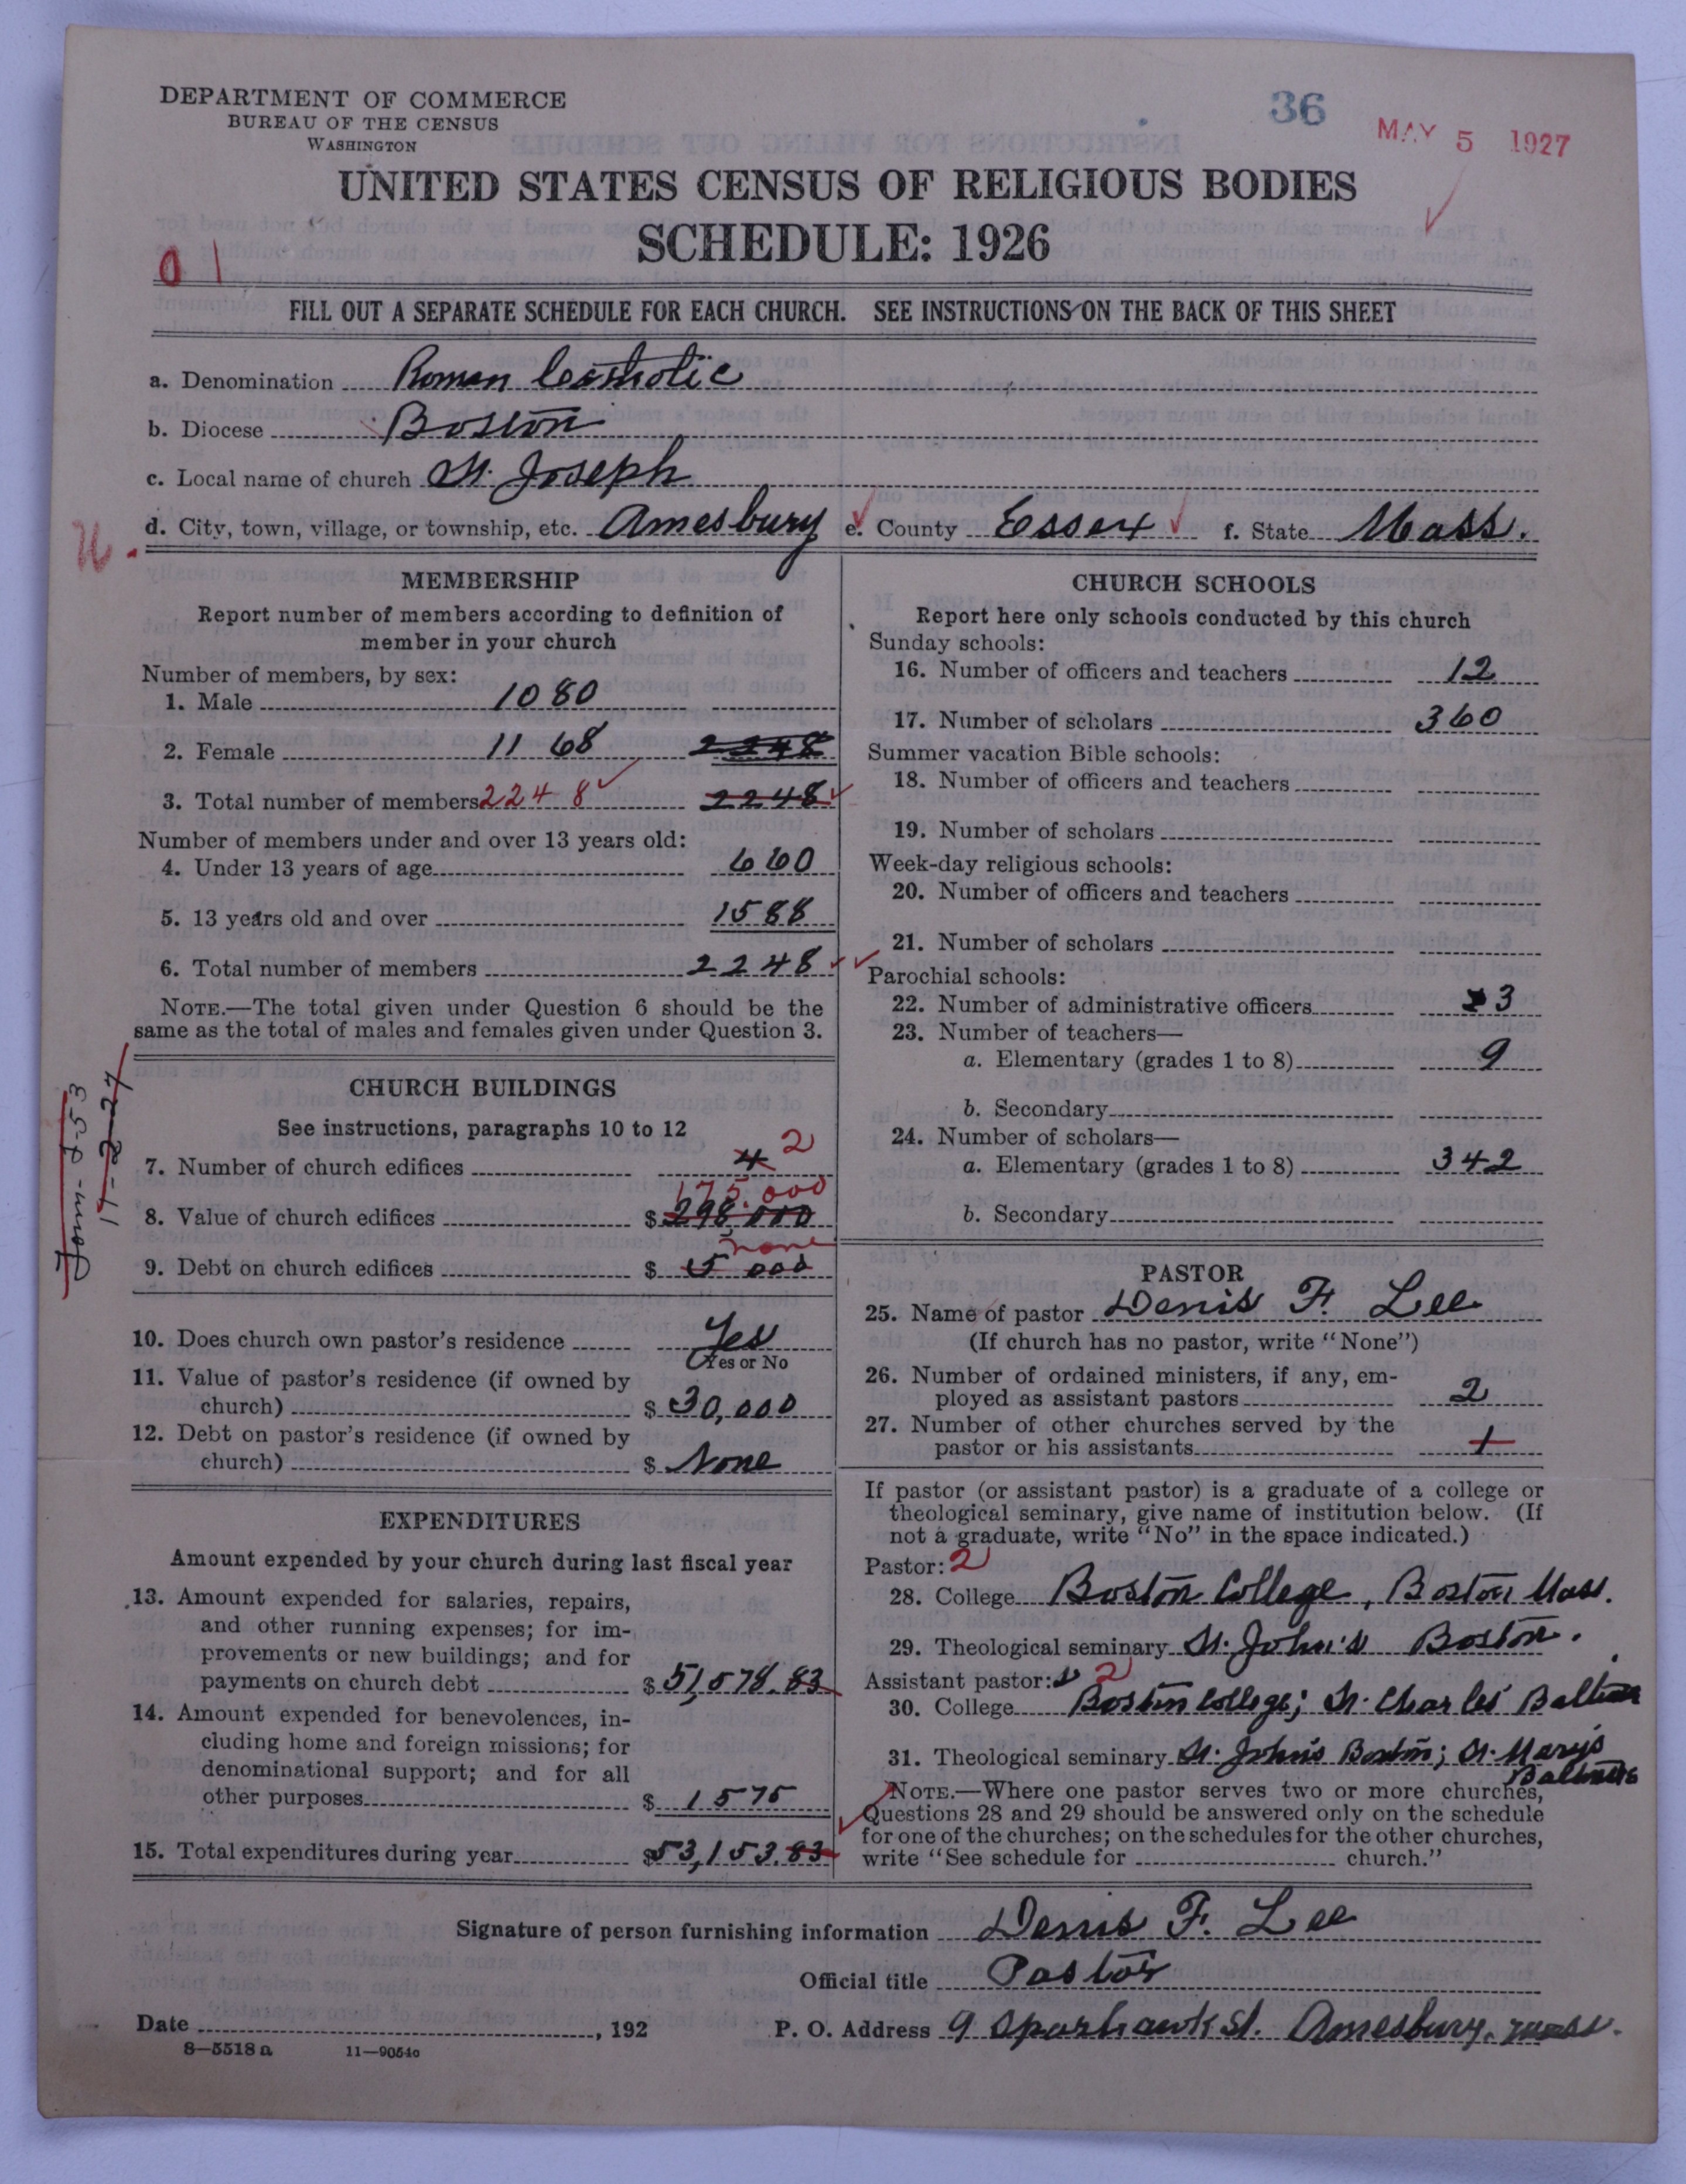 DEPARTMENT OF COMMERCE
BUREAU OF THE CENSUS
WASHINGTON
36
MAY 5 1927
UNITED STATES CENSUS OF RELIGIOUS BODIES
SCHEDULE: 1926
01
FILL OUT A SEPARATE SCHEDULE FOR EACH CHURCH. SEE INSTRUCTIONS ON THE BACK OF THIS SHEET
a. Denomination Roman Catholic
b. Diocese Boston
c. Local name of church St. Joseph
d. City, town, village, or township, etc. Amesbury e. County Essex f. State Mass.
MEMBERSHIP
Report number of members according to definition of
member in your church
Number of members, by sex:
1. Male 1080
2. Female 1168 2248
3. Total number of members 2248 2248
Number of members under and over 13 years old:
4. Under 13 years of age 660
5. 13 years old and over 1588
6. Total number of members 2248
NOTE.—The total given under Question 6 should be the
same as the total of males and females given under Question 3.
CHURCH BUILDINGS
See instructions, paragraphs 10 to 12
7. Number of church edifices 4 2
175.000
8. Value of church edifices $ 298,000
none
9. Debt on church edifices $ 15 000
10. Does church own pastor's residence Yes
Yes or No
11. Value of pastor's residence (if owned by
church) $ 30,000
12. Debt on pastor's residence (if owned by
church) $ None
EXPENDITURES
Amount expended by your church during last fiscal year
13. Amount expended for salaries, repairs,
and other running expenses; for im-
provements or new buildings; and for
payments on church debt $ 51,578.83
14. Amount expended for benevolences, in-
cluding home and foreign missions; for
denominational support; and for all
other purposes $ 1575
15. Total expenditures during year $53,153.83
CHURCH SCHOOLS
Report here only schools conducted by this church
Sunday schools:
16. Number of officers and teachers 12
17. Number of scholars 360
Summer vacation Bible schools:
18. Number of officers and teachers
19. Number of scholars
Week-day religious schools:
20. Number of officers and teachers
21. Number of scholars
Parochial schools:
22. Number of administrative officers 3
23. Number of teachers—
a. Elementary (grades 1 to 8) 9
b. Secondary
24. Number of scholars—
a. Elementary (grades 1 to 8) 342
b. Secondary
PASTOR
25. Name of pastor Denis F. Lee
(If church has no pastor, write "None")
26. Number of ordained ministers, if any, em-
ployed as assistant pastors 2
27. Number of other churches served by the
pastor or his assistants 1
If pastor (or assistant pastor) is a graduate of a college or
theological seminary, give name of institution below. (If
not a graduate, write "No" in the space indicated.)
Pastor: 2
28. College Boston College, Boston Mass.
29. Theological seminary St. John's Boston.
Assistant pastor: 2
30. College Boston College; St. Charles' Baltimore
31. Theological seminary St. John's Boston; St. Mary's
Baltimore
NOTE.—Where one pastor serves two or more churches,
Questions 28 and 29 should be answered only on the schedule
for one of the churches; on the schedules for the other churches,
write "See schedule for church."
Signature of person furnishing information Denis F. Lee
Official title Pastor
Date , 192 P. O. Address 9 Sparhawk St. Amesbury, Mass.
8—5518 a 11—9054o